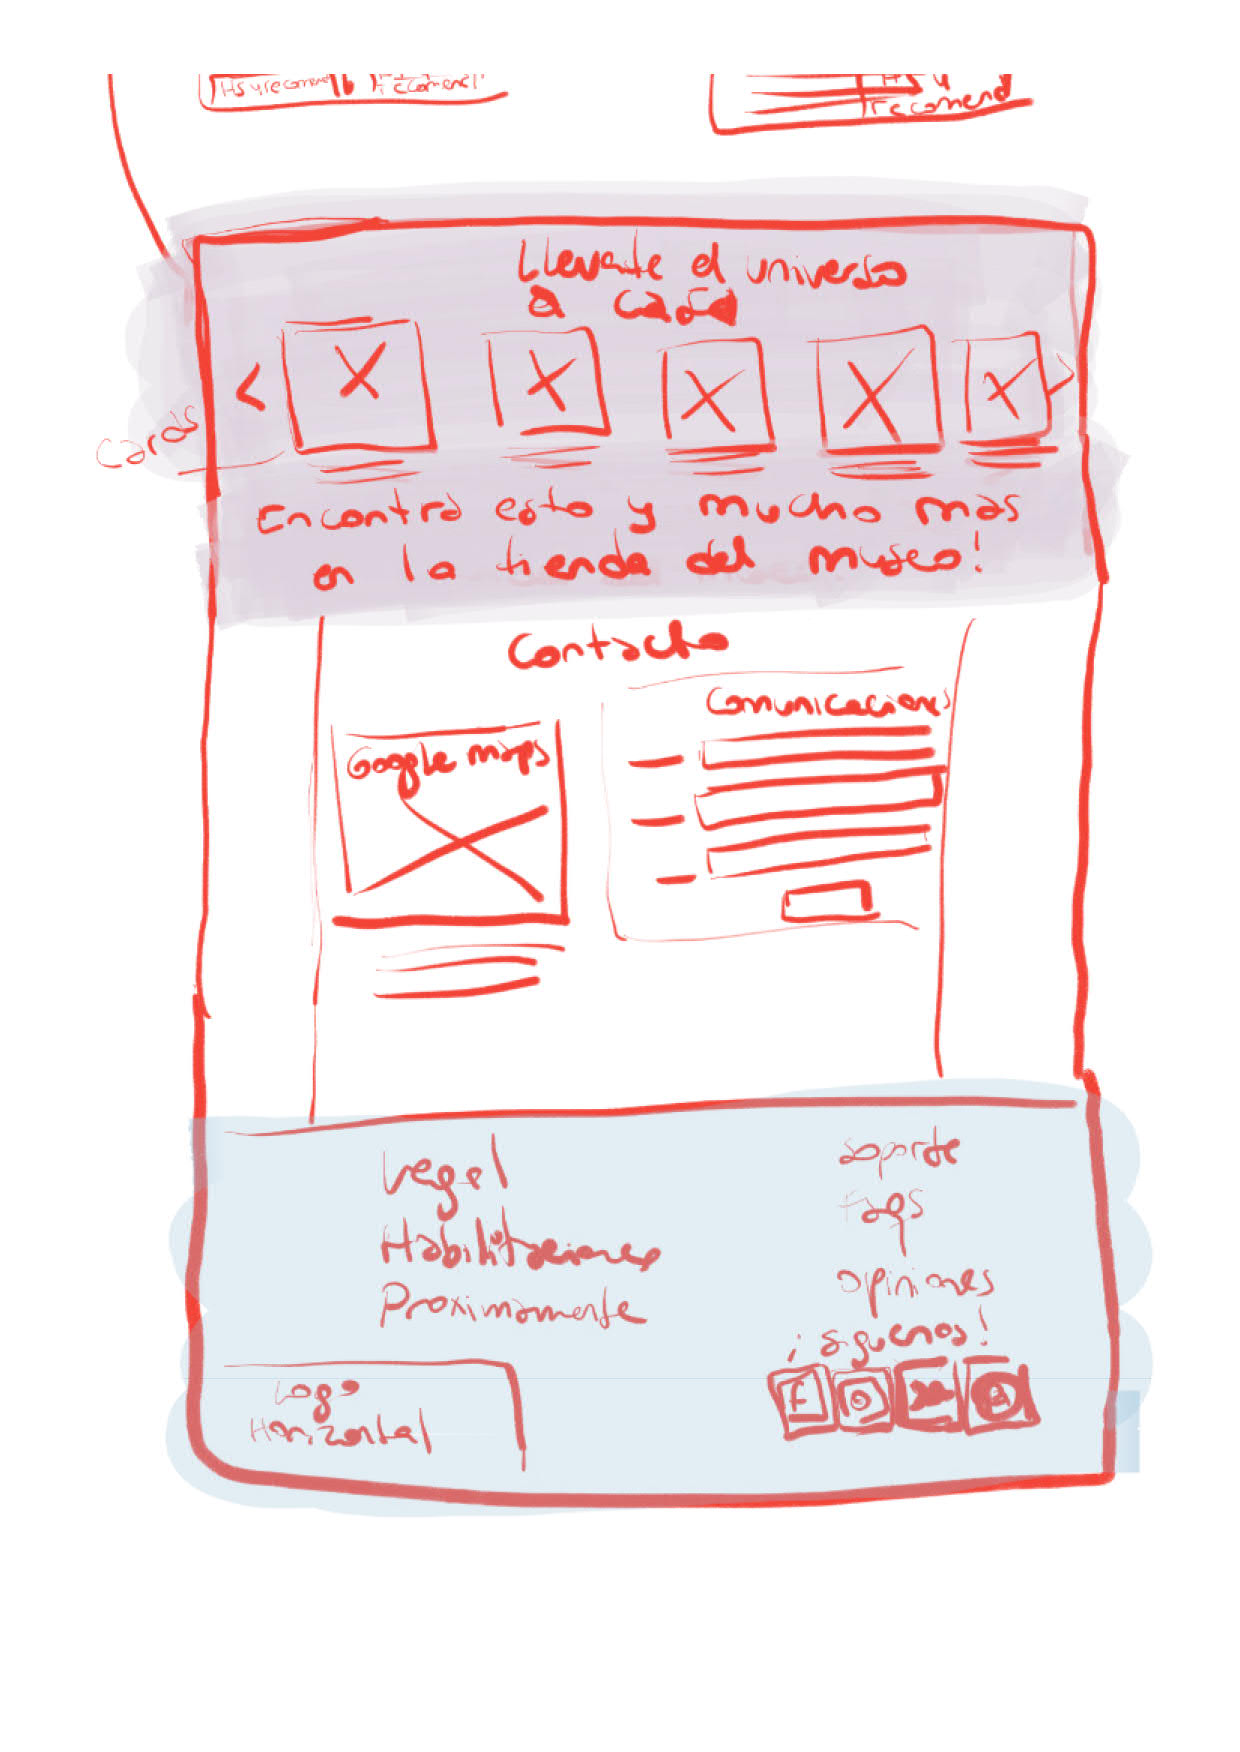 Hs y recomend
recomend
Hs y
recomend
Llevate el universo
a casa
<
>
cards
Encontra esto y mucho mas
en la tienda del museo!
Contacto
Comunicaciones
Google maps
Legal
Habilitaciones
Proximamente
soporte
faqs
opiniones
¡siguenos!
f
Logo
Horizontal